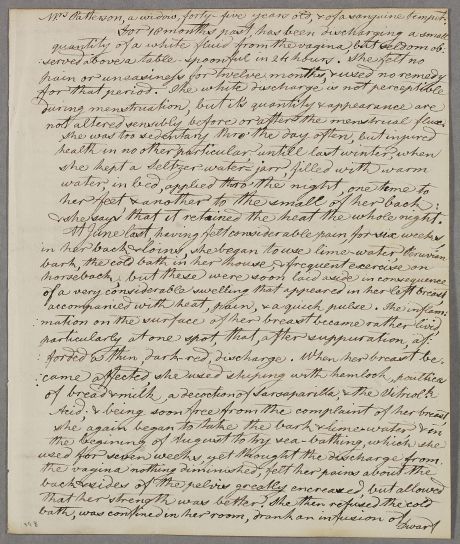 Mrs Patterson, a widow, forty-five years old, & of a sanguine temput.
For 18 months past, has been discharging a small
quantity of a white fluid from the vagina, but seldom ob-
served above a table-spoonful in 24 hours. She felt no
pain or uneasiness for twelve months, & used no remedy
for that period. The white discharge is not perceptible
during menstruation, but its quantity & appearance are
not altered sensibly before or after the menstrual flux.
She was too sedentary thro' the day often, but injured
health in no other particular untill last winter, when
she kept a Seltzer-water-jarr, filled with warm
water, in bed, applied thro' the night, one time to
her feet & another to the small of her back:
& she says that it retained the heat the whole night.
At June last, having felt considerable pain, for six weeks
in her back & loins, she began to use lime-water, Peruvian
bark, the cold bath, in her house, & frequent exercise on
horseback; but these were soon laid aside in consequence
of a very considerable swelling that appeared in her left breast
accompanied with heat, pain, & a quick pulse. The inflam-
mation on the surface of her breast became rather livid,
particularly at one spot that, after suppuration, af-
forded a thin, dark-red, discharge. When her breast be-
came affected she used stuping with hemlock, poultices
of bread & milk, a decoction of Sarsaparilla & the Vitriol:c
Acid, & being soon free from the complaint of her breast
she again began to take the bark & lime-water & in
the begining of August to try sea-bathing, which she
used for seven weeks, yet thought the discharge from
the vagina nothing diminished, felt her pains about the
back & sides of the pelvis greatly encreased, but allowed
that her strength was better. She then refused the cold
bath, was confined in her room, drank an infusion of